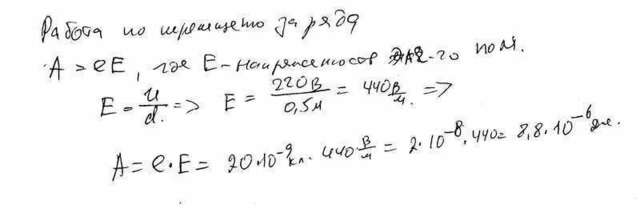 Работа по перемещению заряда
A = eE, где E - напряженность эл-го поля.
E = U/d. => E = 220В/0,5м = 440 В/м. =>
A = e·E = 20·10⁻⁹кл. 440 В/м = 2·10⁻⁸·440 = 8,8·10⁻⁶ дж.